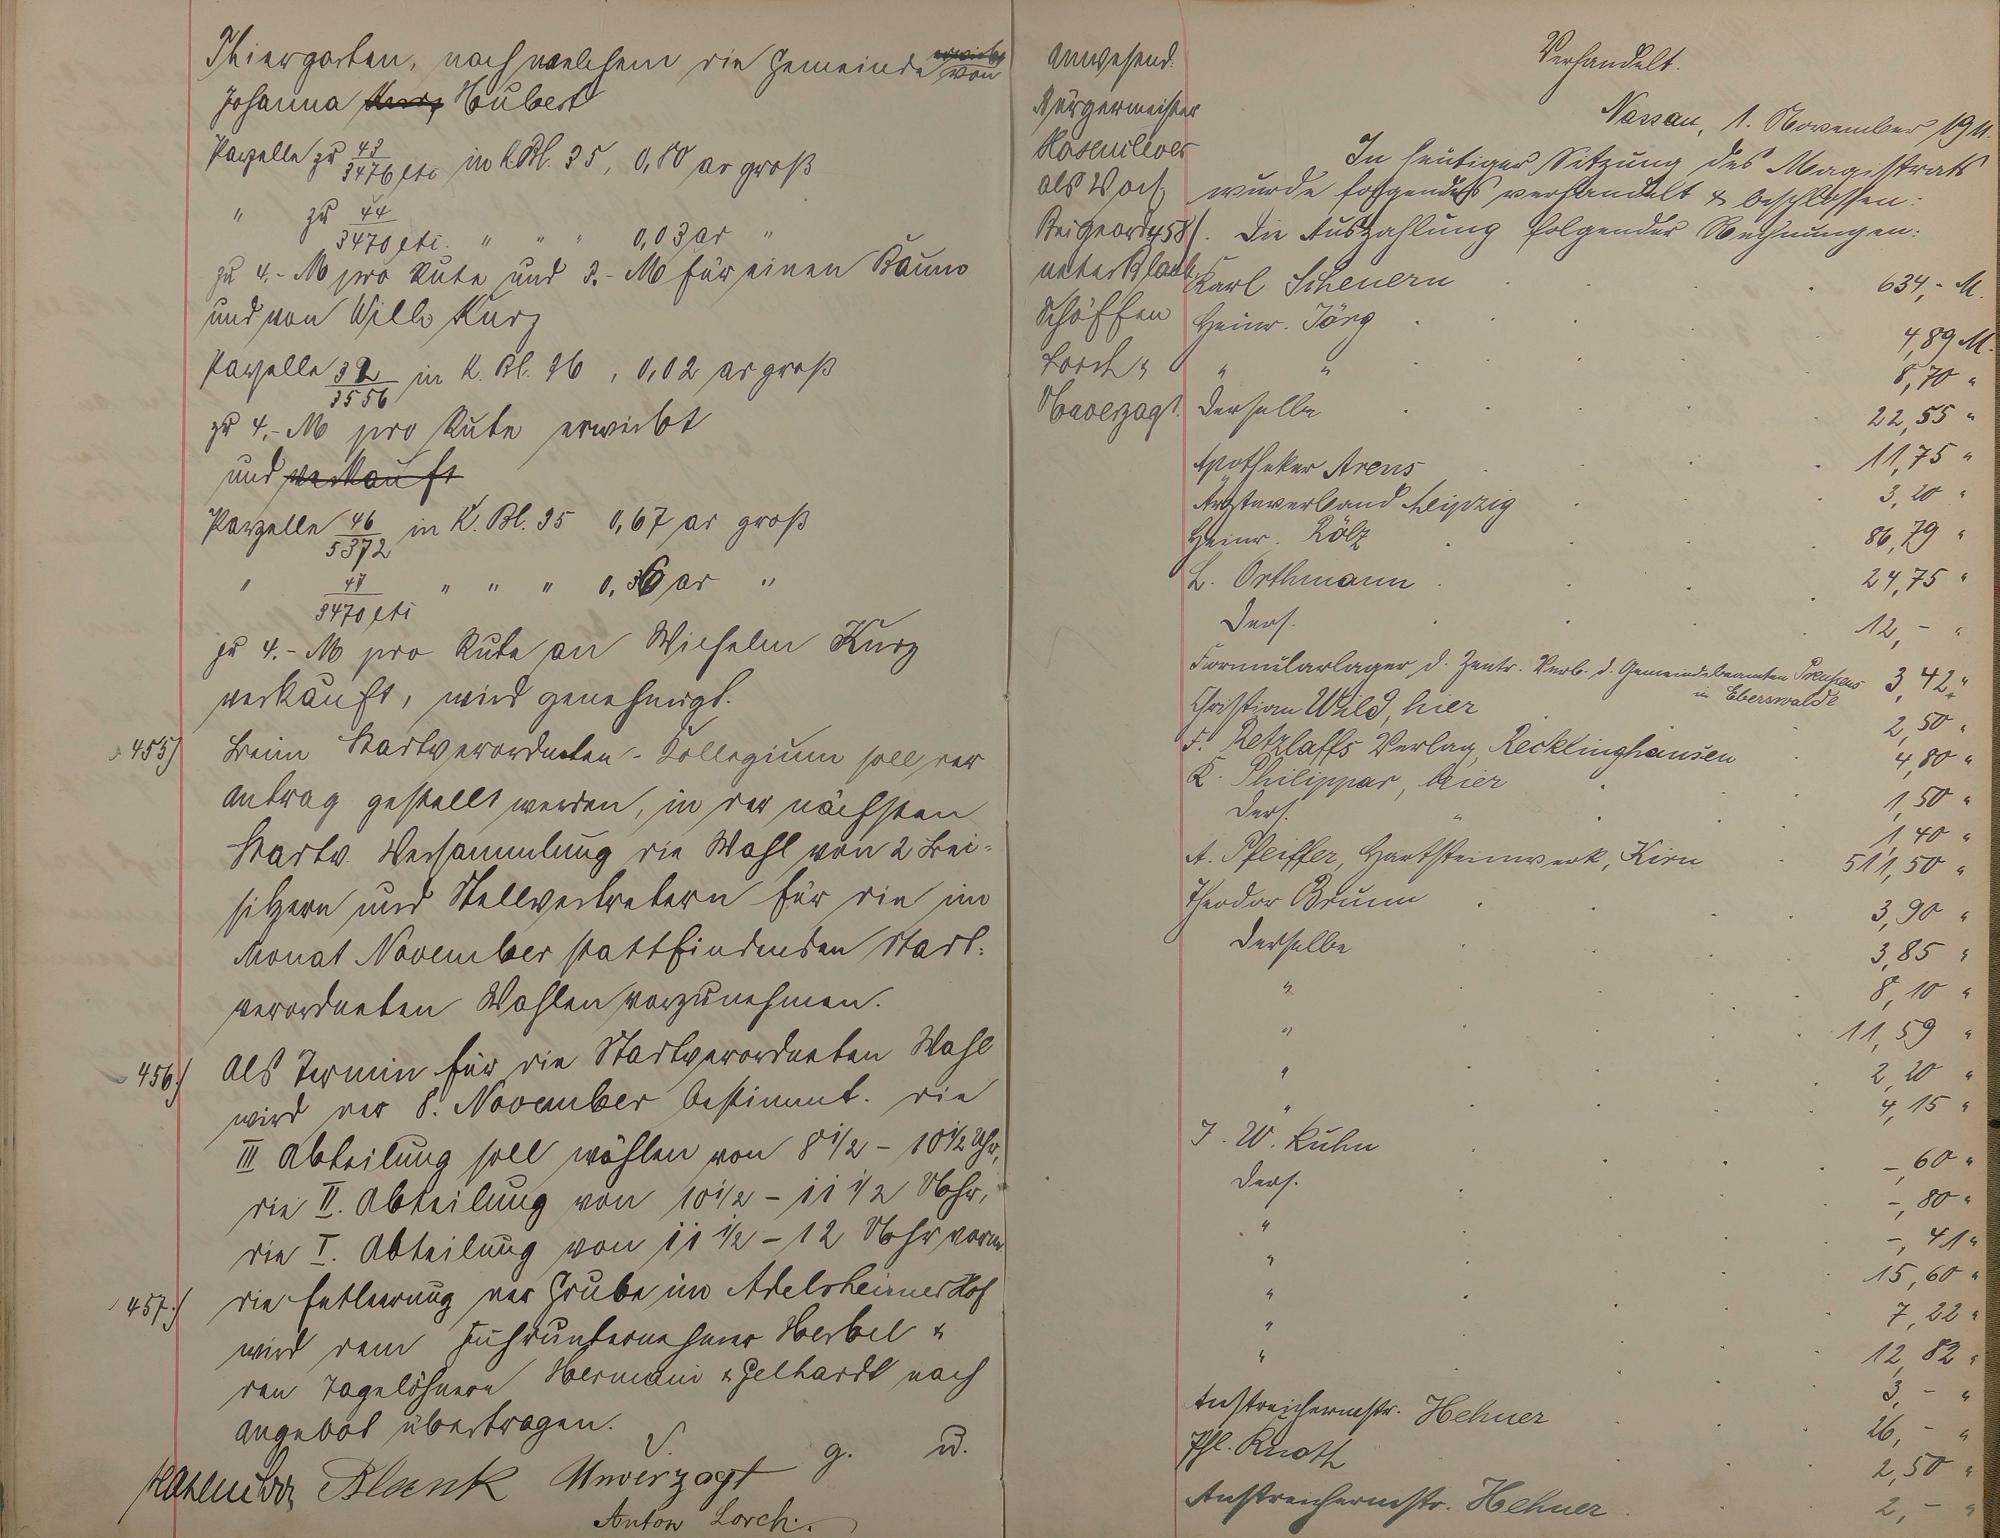 Thiergarten, nach welchem die Gemeinde von
Johanna Kurz Hubert
Parzelle zu 43/3476 etc in K. Bl. 35, 0,80 ar groß
" zu 44/3470 etc. " " " 0,03 ar "
zu 4.- M pro Rute und 3.- M für einen Baum
und von Willi Kurz
Parzelle 32/3556 in K. Bl. 36, 0,02 ar groß
zu 4.- M pro Rute erwirbt
und verkauft
Parzelle 46/5372 in K. Bl. 35 0,67 ar groß
" 47/3470 etc " " " 0,36 ar "
zu 4.- M pro Rute an Wilhelm Kurz
verkauft, wird genehmigt.
455) Beim Stadtverordneten-Kollegium soll der
Antrag gestellt werden, in der nächsten
Stadtv. Versammlung die Wahl von 2 Bei-
sitzern und Stellvertretern für die im
Monat November stattfindenden Stadt-
verordneten Wahlen vorzunehmen.
456.) Als Termin für die Stadtverordneten Wahl
wird der 8. November bestimmt. Die
III Abteilung soll wählen von 8 1/2 - 10 1/2 Uhr,
die II. Abteilung von 10 1/2 - 11 1/2 Uhr,
die I. Abteilung von 11 1/2 - 12 Uhr vorm.
457.) Die Entleerung der Grube im Adelsheimer Hof
wird dem Fuhrunternehmer Herbel &
den Tagelöhnern Hermani & Gelhardt nach
Angebot übertragen.
v. g. u.
Hasenclever Blank Unverzagt
Anton Lorch.
Anwesend:
Bürgermeister
Hasenclever
als Vors.
Beigeord-
neter Blank
Schöffen
Lorch &
Unverzagt.
Verhandelt.
Nassau, 1. November 1911.
In heutiger Sitzung des Magistrats
wurde folgendes verhandelt & beschlossen:
458/. Die Auszahlung folgender Rechnungen:
Karl Scheuern 634,- M.
Heinr. Jörg 4,89 M.
" " 8,70 "
Derselbe 22,55 "
Apotheker Arens 11,75 "
Ärzteverband Leipzig 3,20 "
Heinr. Kölz 86,79 "
L. Orthmann 24,75 "
Ders. 12,- "
Formularlager d. Zentr. Verb. d. Gemeindebeamten Preußens in Eberswalde 3,42 "
Christian Wild, hier 2,50 "
F. Retzlaffs Verlag, Recklinghausen 4,80 "
K. Philippar, hier 1,50 "
Ders. " 1,40 "
A. Pfeiffer, Hartsteinwerk, Kirn 511,50 "
Theodor Brunn 3,90 "
Derselbe 3,85 "
" 8,10 "
" 11,59 "
" 2,20 "
" 4,15 "
J. W. Kuhn -,60 "
Ders. -,80 "
" -,41 "
" 15,60 "
" 7,22 "
" 12,82 "
" 3,- "
Anstreichermstr. Hehner 26,- "
Phl. Knoth 2,50 "
Anstreichermstr. Hehner 2,- "